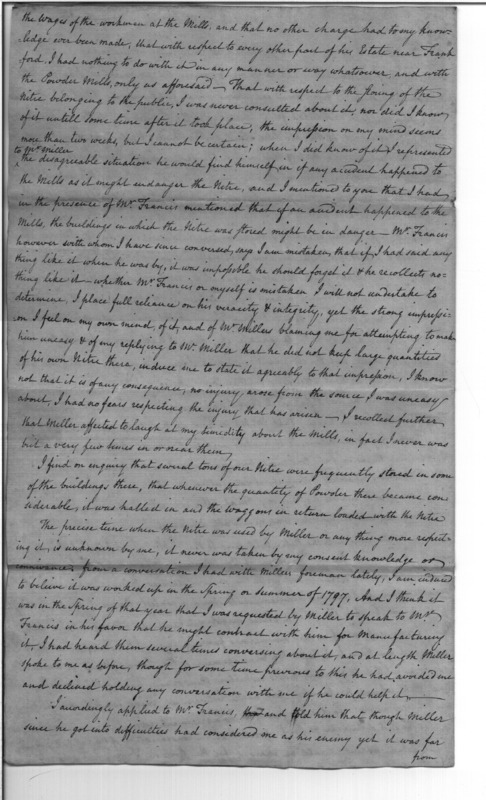 the wages of the workmen at the Mills, and that no other charge had to my know-
ledge ever been made, that with respect to every other part of his Estate near Frank
ford, I had nothing to do with it in any manner or way whatsoever, and with
the Powder Mills, only as aforesaid — That with respect to the of the
Nitre belonging to the public, I was never consulted about it, nor did I know
of it untill some time after it took place, the impression on my mind seems
more than two weeks, but I cannot be certain; when I did know of it I represented
to Mr Miller
the disagreable situation he would find himself in if any accident happened to
the Mills as it might endanger the Nitre, and I mentioned to you that I had
in the presence of Mr Francis mentioned that if an accident happened to the
Mills, the buildings in which the Nitre was stored might be in danger — Mr Francis
however with whom I have since conversed, says I am mistaken, that if I had said any
thing like it when he was by, it was impossible he should forget it & he recollects no-
thing like it — whether Mr Francis or myself is mistaken I will not undertake to
determine, I place full reliance on his veracity & integrity, yet the strong impressi-
on I feel on my own mind, of it, and of Mr Millers blaming me for attempting to make
him uneasy & of my replying to Mr Miller that he did not keep large quantities
of his own Nitre there, induce me to state it agreably to that impression, I know
not that it is of any consequence, no injury arose from the source I was uneasy
about, I had no fears respecting the injury that has arisen — I recollect further
that Miller affected to laugh at my timidity about the Mills, in fact I never was
but a very few times in or near them,
I find on enquiry that several tons of our Nitre were frequently stored in some
of the buildings there, that whenever the quantity of Powder there became con
siderable, it was halled in and the waggons in return loaded with the Nitre
The precise time when the Nitre was used by Miller or any thing more respect-
ing it, is unknown by me, it never was taken by my consent knowledge or
connivance, from a conversation I had with Millers foreman lately, I am induced
to beleive it was worked up in the Spring or Summer of 1797, And I think it
was in the Spring of that year that I was requested by Miller to speak to Mr
Francis in his favor that he might contract with him for Manufacturing
it, I had heard them several times conversing about it, and at length Miller
spoke to me as before, though for some time previous to this he had avoided me
and declined holding any conversation with me if he could help it,
I accordingly applied to Mr Francis, and told him that though Miller
since he got into difficulties had considered me as his enemy yet it was far
from